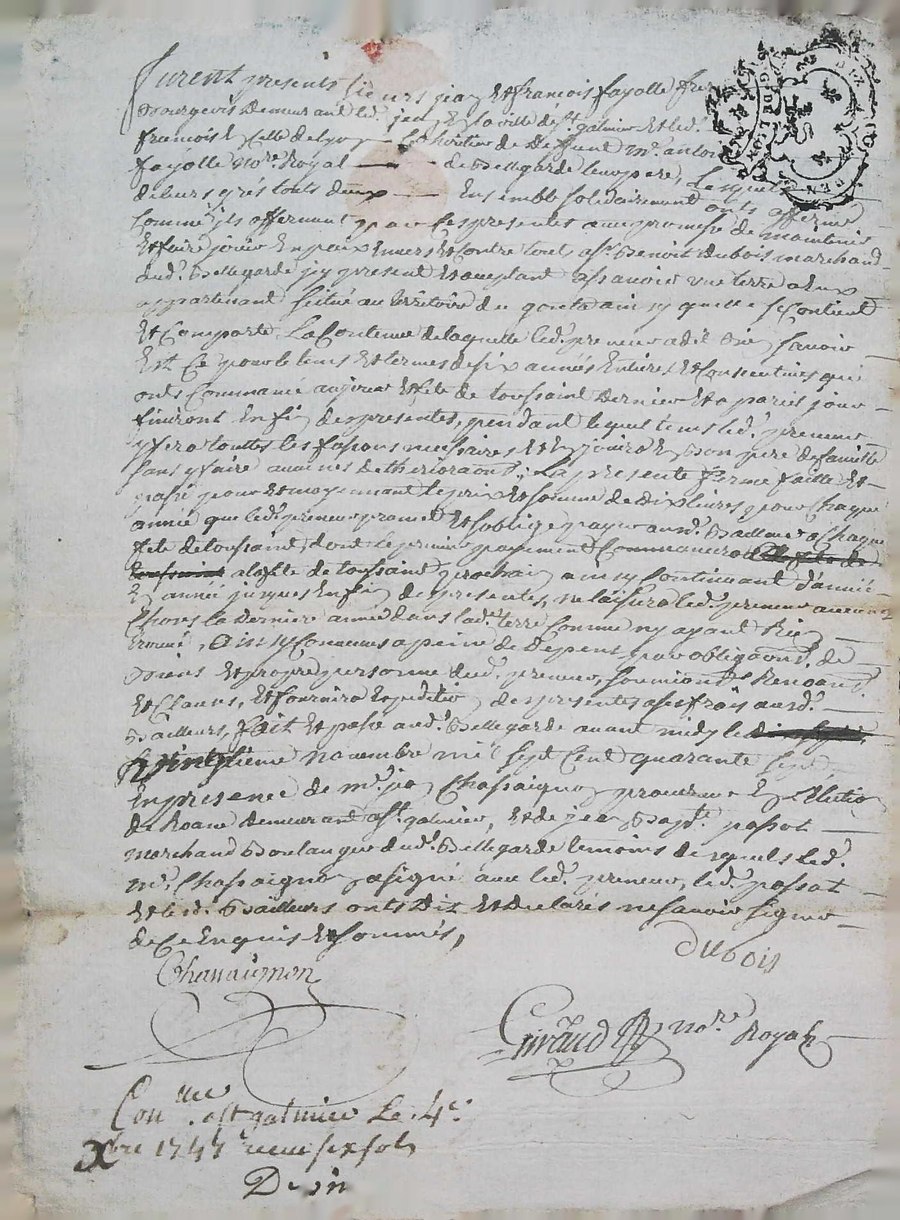 furent presents sieurs jean et francois fayolle freres
Bourgeois demeurant led. jean en la ville de st. galmier et led.
francois en celle de lyon heritier de deffunt mr. antoine
fayolle nore. Royal de Bellegarde leur pere, Lesquels
de leurs grés touts deux ensemble solidairement onts affermé
comme jls afferment par ces presentes avec promesse de maintenir
et faire jouir en paix envers et contre touts a sr. Benoit dubois marchand
dud. Bellegarde jcy present et acceptant assavoir une terre a eux
appartenant scitué au territoire du ainsy quelle se contient
et comporte La contenue de laquelle led. preneur a dit bien scavoir
Est ce pour le tems et termes de six années entieres et consecutives qui
onts commancé au jour et fete de toussaint dernier et a pareil jour
finiront en fin des presentes, pendant lequel tems led. preneur
y fera touttes les fasons necessaires et en jouira en bon pere de famille
sans y faire aucunes detherioraons., La presente ferme faitte et
passé pour et moyennant le prix et somme de dix livres pour chaque
année que led. preneur promet et soblige payer auxd. Bailleurs a chaque
fete de toussaint, dont le premier payement commancera
a la fete de toussaint prochain ainsy continuant d'année
en année jusques en fin des presentes, ne laissera led. preneur aucuns
chomes la derniere année dans lad. terre comme ny ayant Rien
trouvé, Ainsy convenu a peine de depens par obligaons. de
Biens et propre personne dud. preneur, soumions. Renoaons.
et clauses, et fournira expeditio des presentes a ses frais auxd.
Bailleurs, fait et passé aud. Bellegarde avant midy le
vingtieme novembre mil sept cent quarante sept,
En presence de mr. jean Chassaignon procureur en Election
de Roane demeurant a st. galmier, et de jean Bapt. passot
marchand Boulanger dud. Bellegarde temoins desquels led.
mr. Chassaignon a signé avec led. preneur, led. passot
et lesd. Bailleurs onts dit et declarés ne savoir signer
de ce enquis et sommés,
dubois
Chassaignon
Giraud nore. Royal
Con. a st galmier Le 4e.
Xbre 1747 receu six sols